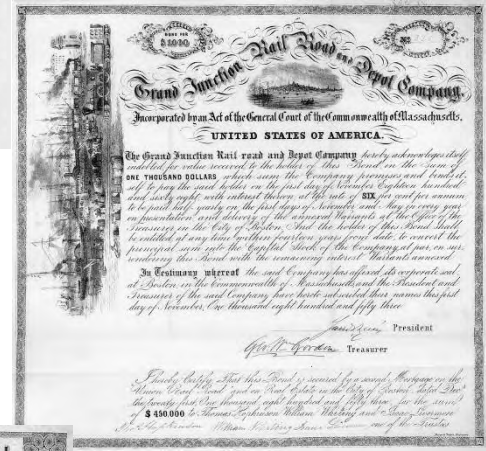 BOND FOR
$1000
No
Grand Junction Rail Road and Depot Company.
Incorporated by an Act of the General Court of the Commonwealth of Massachusetts.
UNITED STATES OF AMERICA.
The Grand Junction Rail road and Depot Company hereby acknowleges itself
indebted for value received to the holder of this Bond in the sum of
ONE THOUSAND DOLLARS which sum the Company promises and binds it-
self to pay the said holder on the first day of November Eighteen hundred
and sixty eight with interest thereon at the rate of SIX per cent per annum
to be paid half yearly on the first days of November and May for every year
on presentation and delivery of the annexed Warrants at the Office of the
Treasurer in the City of Boston. And the holder of this Bond shall
be entitled at any time within fourteen years from date, to convert the
principal sum into the Capital Stock of the Company at par, on sur-
rendering this Bond with the remaining interest Warrants annexed.
In Testimony whereof the said Company has affixed its corporate seal
at Boston, in the Commonwealth of Massachusetts and the President and
Treasurer of the said Company have hereto subscribed their names this first
day of November, One thousand eight hundred and fifty three
President
Geo. W. Treasurer
I hereby Certify That this Bond is secured by a second Mortgage on the
Union Rail Road and on Real Estate in the City of Boston, dated Decr.
the twenty first One thousand eight hundred and fifty three for the sum
of $450.000 to Thomas Hopkinson William Whiting and Isaac
one of the Trustees